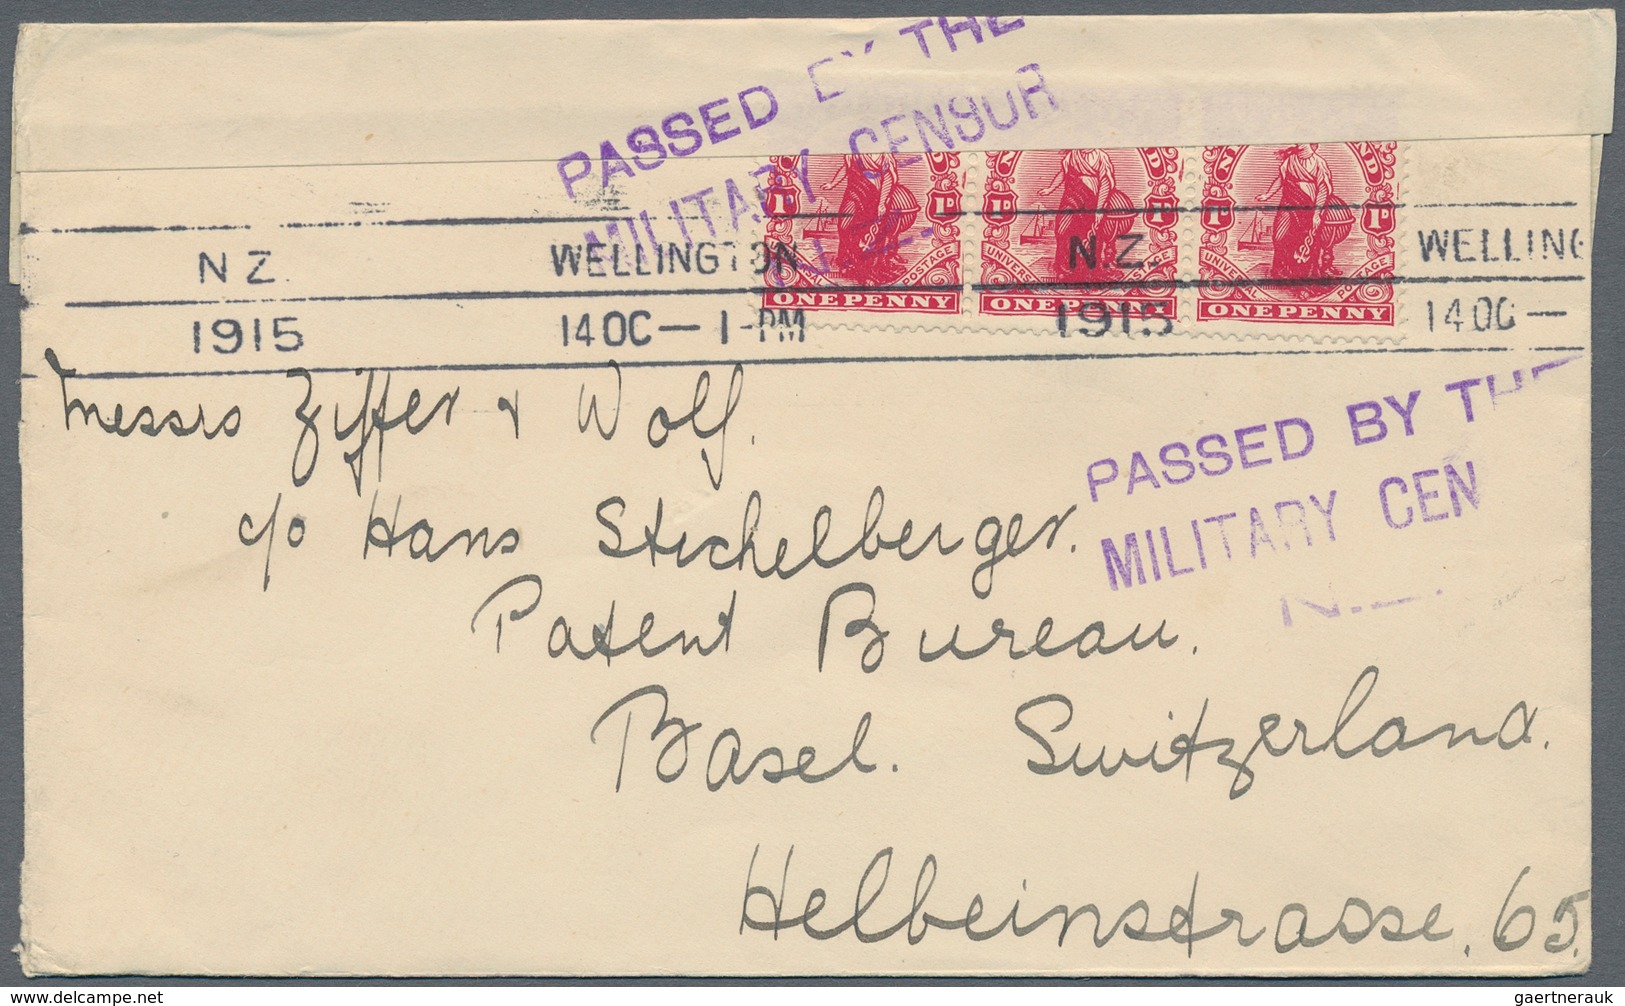 PASSED BY THE
MILITARY CENSOR
N.Z.
1D 1D 1D 1D 1D
UNIVERSAL POSTAGE UNIVERSAL POSTAGE UNIVERSAL POSTAGE
ONE PENNY ONE PENNY ONE PENNY
N Z. WELLINGTON N.Z. WELLING
1915 14 OC — 1 - PM 1915 14 OC —
Messrs Ziffer & Wolf.
PASSED BY THE
MILITARY CEN
N.Z.
c/o Hans Stichelberger.
Patent Bureau.
Basel. Switzerland.
Helbeinstrasse. 65.
gaertnerauk